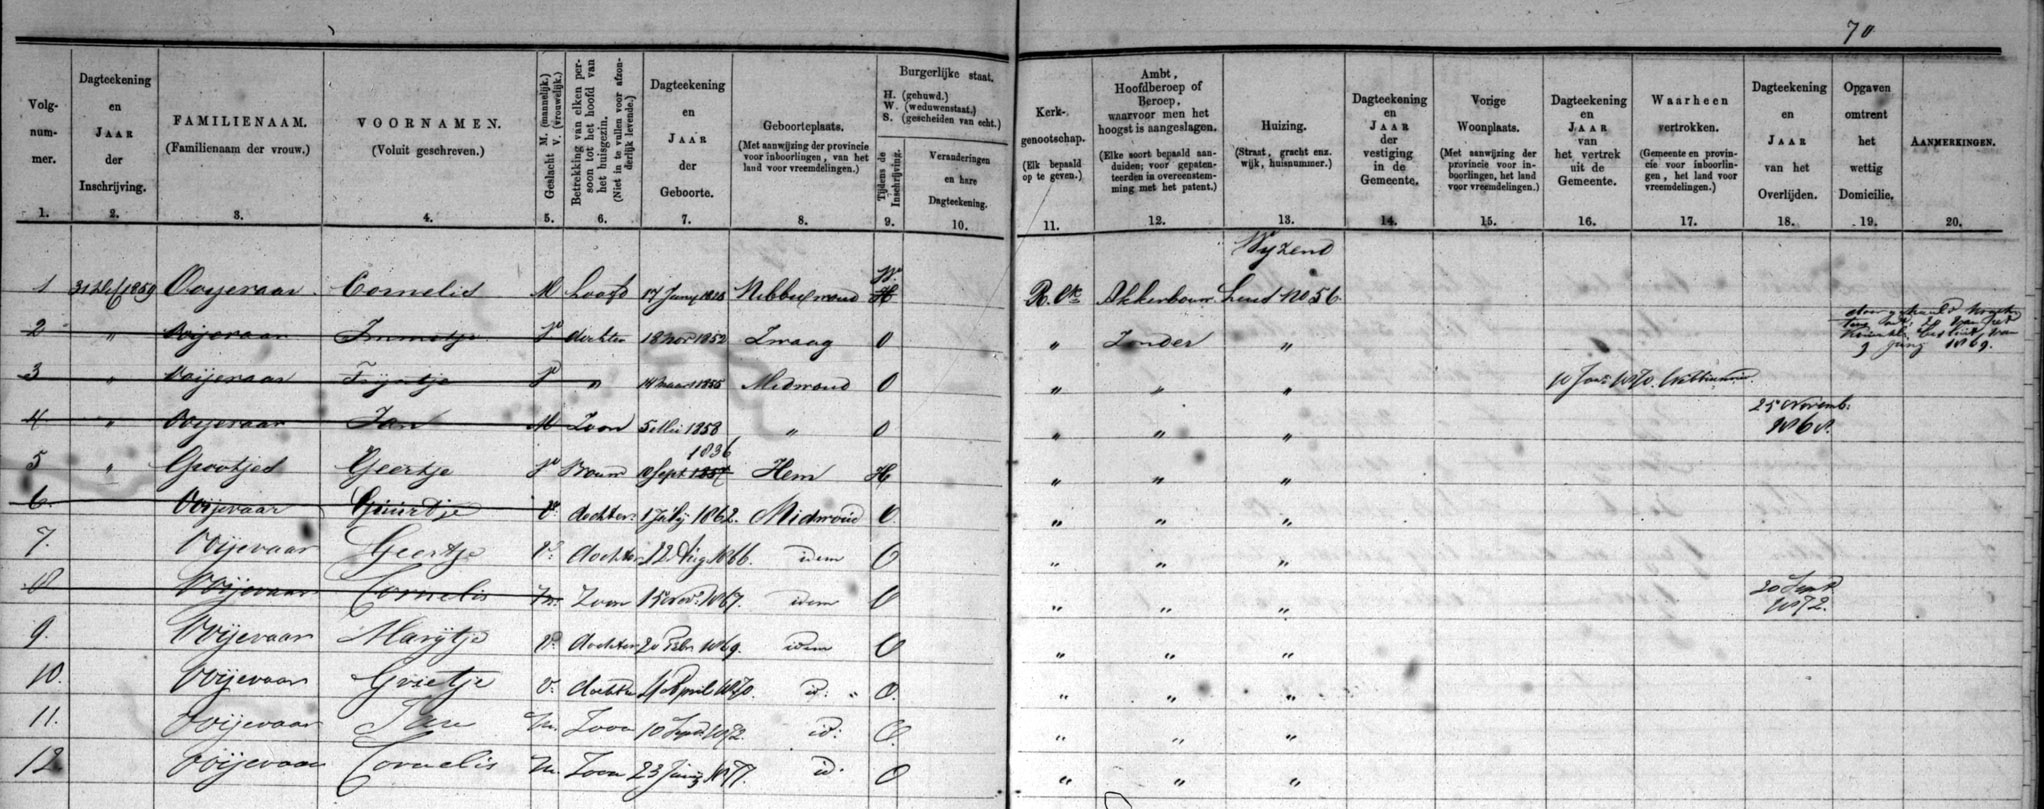 70
Volg-
num-
mer.
1.
Dagteekening
en
JAAR
der
Inschrijving.
2.
FAMILIENAAM.
(Familienaam der vrouw.)
3.
VOORNAMEN.
(Voluit geschreven.)
4.
Geslacht M. (mannelijk.)
V. (vrouwelijk.)
5.
Betrekking van elken per-
soon tot het hoofd van
het huisgezin.
(Niet in te vullen voor afzon-
derlijk levende.)
6.
Dagteekening
en
JAAR
der
Geboorte.
7.
Geboorteplaats.
(Met aanwijzing der provincie
voor inboorlingen, van het
land voor vreemdelingen.)
8.
Burgerlijke staat.
H. (gehuwd.)
W. (weduwenstaat.)
S. (gescheiden van echt.)
Tijdens de
Inschrijving.
9.
Veranderingen
en hare
Dagteekening.
10.
Kerk-
genootschap.
(Elk bepaald
op te geven.)
11.
Ambt,
Hoofdberoep of
Beroep,
waarvoor men het
hoogst is aangeslagen.
(Elke soort bepaald aan-
duiden; voor gepaten-
teerden in overeenstem-
ming met het patent.)
12.
Huizing.
(Straat, gracht enz.
wijk, huisnummer.)
13.
Dagteekening
en
JAAR
der
vestiging
in de
Gemeente.
14.
Vorige
Woonplaats.
(Met aanwijzing der
provincie voor in-
boorlingen, het land
voor vreemdelingen.)
15.
Dagteekening
en
JAAR
van
het vertrek
uit de
Gemeente.
16.
Waarheen
vertrokken.
(Gemeente en provin-
cie voor inboorlin-
gen, het land voor
vreemdelingen.)
17.
Dagteekening
en
JAAR
van het
Overlijden.
18.
Opgaven
omtrent
het
wettig
Domicilie.
19.
AANMERKINGEN.
20.
Wyzend
1 1859 Ooijevaar Cornelis M hoofd 17 Nibbixwoud W. H R. Ck Akkerbouwer No 56
2 " Ooijevaar Immetje V dochter 18 nov 1852 Zwaag O " Zonder "
9 Juny 1869.
3 " Ooijevaar Trijntje V " 14 maart 1855 Midwoud O " " " 10 1870.
4 " Ooijevaar Jan M Zoon 5 Mei 1858 " O " " " 25 Novemb: 1868.
1836
5 " Grootjes Geertje V Vrouw Sept Hem H " " "
6. Ooijevaar Guurtje V. dochter 1 July 1862. Midwoud O. " " "
7. Ooijevaar Geertje V. dochter 12 Aug 1866. idem O " " "
8 Ooijevaar Cornelis M. Zoon 15 Nov. 1867. idem O " " " 20 Sept 1872.
9. Ooijevaar Marijtje V. dochter 20 Febr 1869. idem O " " "
10. Ooijevaar Grietje V. dochter April 1870. id: " O. " " "
11. Ooijevaar Jan M. Zoon 10 Sept 1872. id: O. " " "
12 Ooijevaar Cornelis M. Zoon 23 Juny 1877. id. O " " "